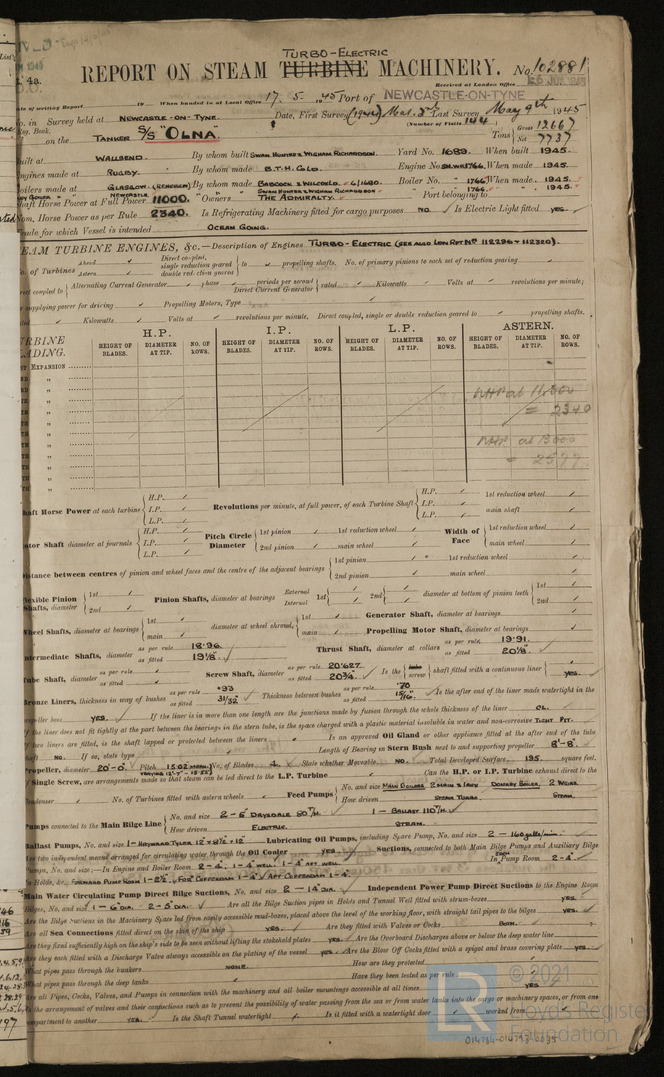 TURBO-ELECTRIC
4a. REPORT ON STEAM TURBINE MACHINERY. No. 102881
Received at London Office
of writing Report 19 When handed in at Local Office 17. 5. 1945 Port of NEWCASTLE-ON-TYNE
in Survey held at NEWCASTLE-ON-TYNE Date, First Survey (1944) Mar. 3rd Last Survey May 9th 1945
Reg. Book. (Number of Visits 144)
on the TANKER S/S "OLNA." Tons Gross 12667 Net 7737
Built at WALLSEND. By whom built SWAN HUNTER & WIGHAM RICHARDSON. Yard No. 1689. When built 1945.
Engines made at RUGBY. By whom made B.T.H. CO LD. Engine No. 1766. When made 1945.
Boilers made at GLASGOW. (RENFREW) By whom made BABCOCK & WILCOX LD. 6/1680. Boiler No. 1766. When made 1945.
NEWCASTLE. SWAN HUNTER & WIGHAM RICHARDSON 1766. 1945.
Shaft Horse Power at Full Power 11000. Owners THE ADMIRALTY. Port belonging to
Nom. Horse Power as per Rule 2340. Is Refrigerating Machinery fitted for cargo purposes NO. Is Electric Light fitted YES.
Trade for which Vessel is intended OCEAN GOING.
STEAM TURBINE ENGINES, &c.—Description of Engines TURBO-ELECTRIC (SEE ALSO LON RPT Nos 112296 & 112320).
No. of Turbines Ahead Astern Direct coupled, single reduction geared double reduction geared to propelling shafts. No. of primary pinions to each set of reduction gearing
direct coupled to Alternating Current Generator phase periods per second Direct Current Generator rated Kilowatts Volts at revolutions per minute;
for supplying power for driving Propelling Motors, Type
rated Kilowatts Volts at revolutions per minute. Direct coupled, single or double reduction geared to propelling shafts.
TURBINE BLADING. H.P. I.P. L.P. ASTERN.
HEIGHT OF BLADES. DIAMETER AT TIP. NO. OF ROWS. HEIGHT OF BLADES. DIAMETER AT TIP. NO. OF ROWS. HEIGHT OF BLADES. DIAMETER AT TIP. NO. OF ROWS. HEIGHT OF BLADES. DIAMETER AT TIP. NO. OF ROWS.
EXPANSION
NHP at 11,000
= 2340
NHP at 13000
= 2577
Shaft Horse Power at each turbine H.P. I.P. L.P. Revolutions per minute, at full power, of each Turbine Shaft H.P. I.P. L.P. 1st reduction wheel main shaft
Rotor Shaft diameter at journals H.P. I.P. L.P. Pitch Circle Diameter 1st pinion 2nd pinion 1st reduction wheel main wheel Width of Face 1st reduction wheel main wheel
Distance between centres of pinion and wheel faces and the centre of the adjacent bearings 1st pinion 2nd pinion 1st reduction wheel main wheel
Flexible Pinion Shafts, diameter 1st 2nd Pinion Shafts, diameter at bearings External Internal 1st 2nd diameter at bottom of pinion teeth 1st 2nd
Wheel Shafts, diameter at bearings 1st main diameter at wheel shroud, 1st main Generator Shaft, diameter at bearings Propelling Motor Shaft, diameter at bearings
Intermediate Shafts, diameter as per rule 18.96 as fitted 19 1/8" Thrust Shaft, diameter at collars as per rule 19.91. as fitted 20 1/8"
Tube Shaft, diameter as per rule as fitted Screw Shaft, diameter as per rule 20.627 as fitted 20 3/4" Is the tube screw shaft fitted with a continuous liner YES.
Bronze Liners, thickness in way of bushes as per rule .93 as fitted 31/32" Thickness between bushes as per rule .70 as fitted 15/16" Is the after end of the liner made watertight in the
propeller boss YES. If the liner is in more than one length are the junctions made by fusion through the whole thickness of the liner OL.
If the liner does not fit tightly at the part between the bearings in the stern tube, is the space charged with a plastic material insoluble in water and non-corrosive TIGHT FIT.
If two liners are fitted, is the shaft lapped or protected between the liners Is an approved Oil Gland or other appliance fitted at the after end of the tube
shaft NO. If so, state type Length of Bearing in Stern Bush next to and supporting propeller 8'-8".
Propeller, diameter 20'-0" Pitch 15.02 MEAN. No. of Blades 4. State whether Moveable NO. Total Developed Surface 195. square feet.
If Single Screw, are arrangements made so that steam can be led direct to the L.P. Turbine Can the H.P. or I.P. Turbine exhaust direct to the
Condenser No. of Turbines fitted with astern wheels Feed Pumps No. and size MAIN BOILERS 2 MAIN & 1 AUX DONKEY BOILER 2 WEIR How driven STEAM TURBO. STEAM.
Pumps connected to the Main Bilge Line No. and size 2 - 6" DRYSDALE 50 T/H. 1 - BALLAST 110 T/H. How driven ELECTRIC. STEAM.
Ballast Pumps, No. and size 1 - HAYWARD TYLER Lubricating Oil Pumps, including Spare Pump, No. and size 2 - 160 galls/min
Are two independent means arranged for circulating water through the Oil Cooler YES Suctions, connected to both Main Bilge Pumps and Auxiliary Bilge
Pumps, No. and size:—In Engine and Boiler Room 2-4", 1-4" WELL. 1-4" AFT WELL In Pump Room 2-4".
In Holds, &c. FORWARD PUMP ROOM 1-2½", FORD COFFERDAM 1-4" AFT COFFERDAM 1-4"
Main Water Circulating Pump Direct Bilge Suctions, No. and size 2 - 14" DIA. Independent Power Pump Direct Suctions to the Engine Room
Bilges, No. and size 1 - 6" DIA. 2 - 5" DIA. Are all the Bilge Suction pipes in Holds and Tunnel Well fitted with strum-boxes YES.
Are the Bilge Suctions in the Machinery Space led from easily accessible mud-boxes, placed above the level of the working floor, with straight tail pipes to the bilges YES.
Are all Sea Connections fitted direct on the skin of the ship YES. Are they fitted with Valves or Cocks BOTH.
Are they fixed sufficiently high on the ship's side to be seen without lifting the stokehold plates YES. Are the Overboard Discharges above or below the deep water line
Are they each fitted with a Discharge Valve always accessible on the plating of the vessel YES. Are the Blow Off Cocks fitted with a spigot and brass covering plate YES.
What pipes pass through the bunkers NONE. How are they protected
What pipes pass through the deep tanks Have they been tested as per rule
Are all Pipes, Cocks, Valves, and Pumps in connection with the machinery and all boiler mountings accessible at all times YES
Is the arrangement of valves and their connections such as to prevent the possibility of water passing from the sea or from water tanks into the cargo or machinery spaces, or from one
compartment to another YES. Is the Shaft Tunnel watertight Is it fitted with a watertight door worked from
LR © 2021
Lloyd's Register
Foundation